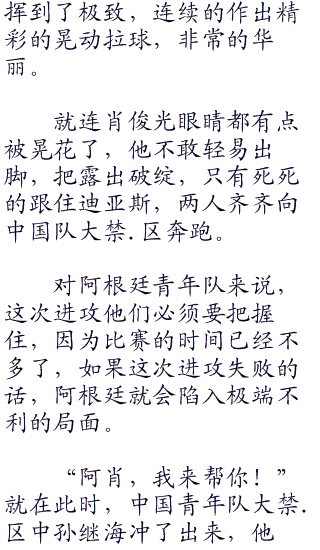 挥到了极致，连续的作出精
彩的晃动拉球，非常的华
丽。
就连肖俊光眼睛都有点
被晃花了，他不敢轻易出
脚，把露出破绽，只有死死
的跟住迪亚斯，两人齐齐向
中国队大禁.区奔跑。
对阿根廷青年队来说，
这次进攻他们必须要把握
住，因为比赛的时间已经不
多了，如果这次进攻失败的
话，阿根廷就会陷入极端不
利的局面。
“阿肖，我来帮你！”
就在此时，中国青年队大禁.
区中孙继海冲了出来，他